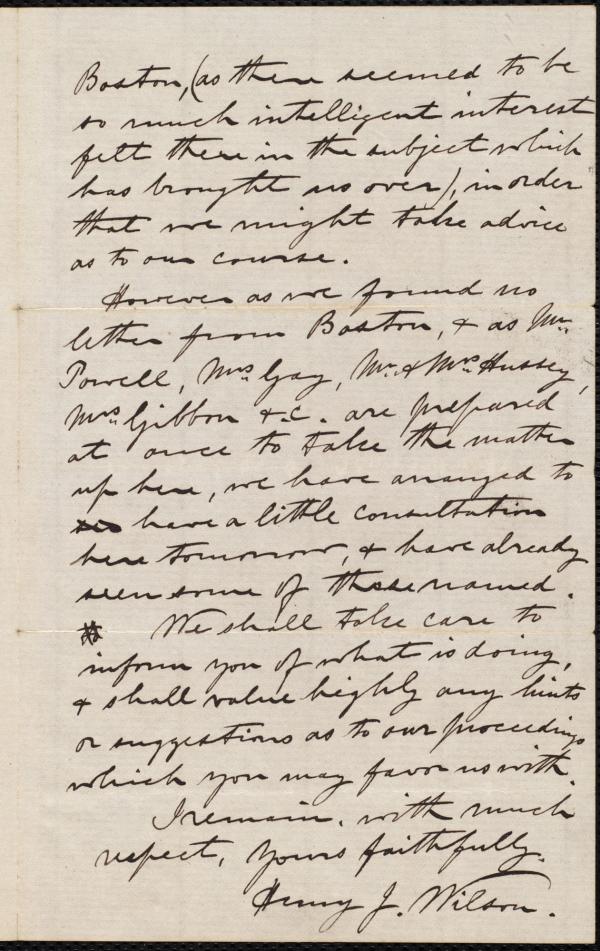 Boston, (as there seemed to be
so much intelligent interest
felt there in the subject which
has brought us over), in order
that we might take advice
as to our course.
However as we found no
letter from Boston, & as Mr.
Powell, Mrs. Gay, Mr. & Mrs. Hussey,
Mrs. Gibbon &.c. are prepared
at once to take the matter
up here, we have arranged to
have a little consultation
here tomorrow, & have already
seen some of those named.
We shall take care to
inform you of what is doing,
& shall value highly any hints
or suggestions as to our proceedings
which you may favor us with.
I remain, with much
respect, yours faithfully.
Henry J. Wilson.